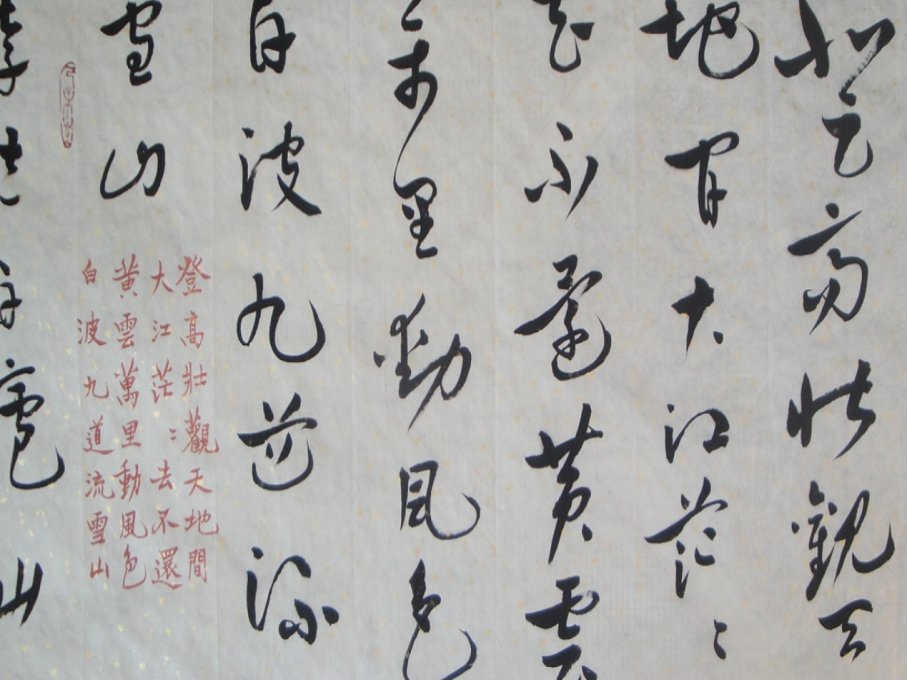 登高壯觀天
地間大江茫〻
去不還黃雲
萬里動風色
白波九道流
雪山
李廬山
登高壯觀天地間
大江茫〻去不還
黃雲萬里動風色
白波九道流雪山